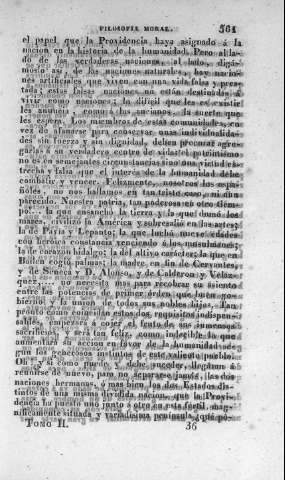 FILOSOFIA MORAL. 561
el papel que la Providencia haya asignado á la
nacion en la historia de la humanidad. Pero al la-
do de las verdaderas naciones, al lado, digá-
moslo así, de las naciones naturales, hay nacio-
nes artificiales que viven con una vida falsa y pres-
tada; estas falsas naciones no están destinadas á
vivir como naciones; la difícil que les es existir
les anuncia, como á los ancianos, la suerte que
les espera. Los miembros de estas comunidades, en
vez de afanarse para conservar unas individualida-
des sin fuerza y sin dignidad, deben procurar agre-
garlas á su verdadero centro de vida: el patriotismo
no es en semejantes circunstancias sino una virtud es-
trecha y falsa que el interés de la humanidad debe
combatir y vencer. Felizmente, nosotros los espa-
ñoles, no nos hallamos en tan triste caso, ni
parecido. Nuestra patria, tan poderosa en otro tiem-
po... la que ensanchó la tierra y la que domó los
mares; la de la América y
la de Pavía y Lepanto; la que luchó nueve edades
con heróica constancia venciendo á los musulmanes;
la de corazon hidalgo; la del altivo carácter; la que en
Bailen cogió palmas; la madre, en fin, de Cervantes,
y de Séneca y D. Alonso, y de Calderon y Velaz-
quez.... no necesita mas para recobrar su asiento
entre las potencias de primer órden que buen go-
bierno y la union de todos sus nobles hijos. Tan
pronto como coincidan estos dos requisitos indispen-
sables, empezará á coger el fruto de sus inmensos
sacrificios, y será tan feliz, como indecible la que
aumentará su accion en favor de la humanidad, se-
gun los generosos instintos de este valiente pueblo.
Oh! y si, como puede y debe suceder, llegáran á
reunirse de nuevo, para no separarse jamás, las dos
naciones hermanas, ó mas bien los dos Estados dis-
tintos de una misma dividida nacion, que la Provi-
dencia ha puesto uno junto á otro en esta fértil, mag-
níficamente situada y variadísima península, qué po-
TOMO II. 36